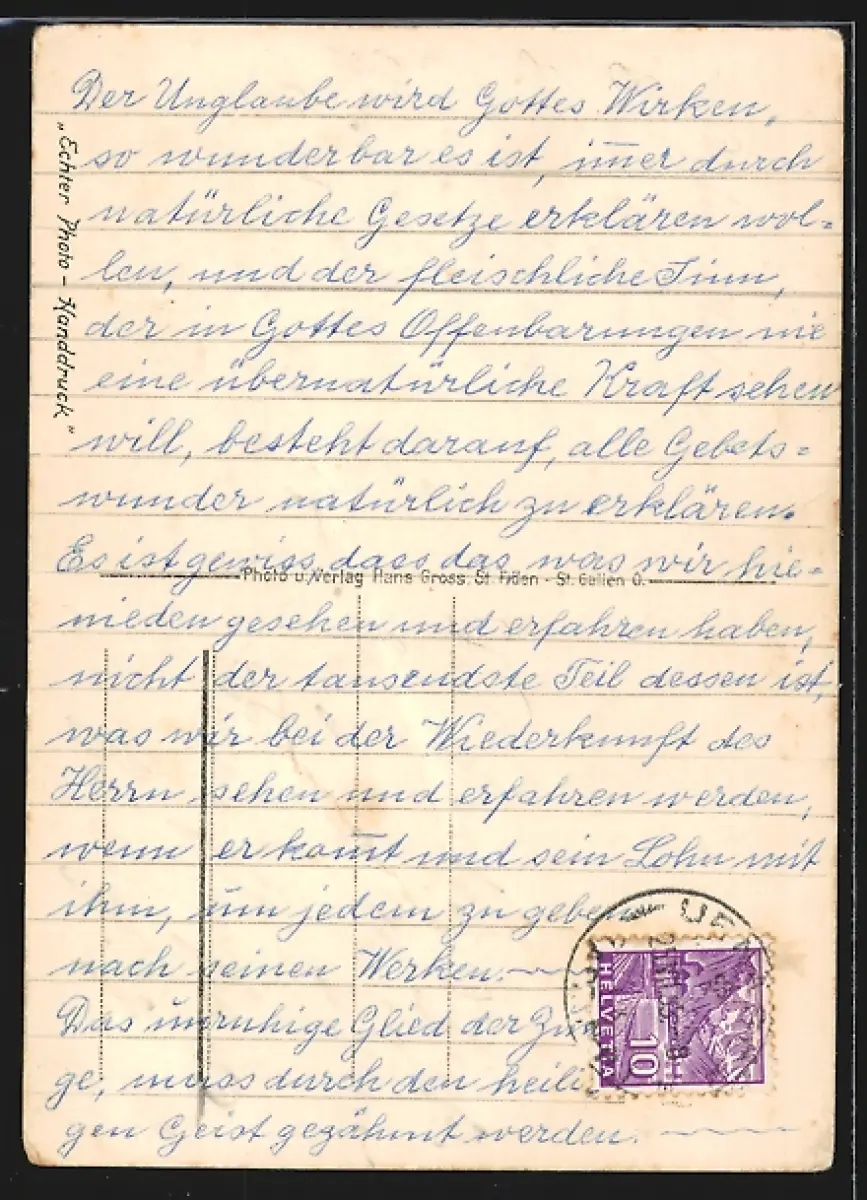 Der Unglaube wird Gottes Wirken,
so wunderbar es ist, im̅er durch
natürliche Gesetze erklären wol=
len, und der fleischliche Sinn,
der in Gottes Offenbarungen nie
eine übernatürliche Kraft sehen
will, besteht darauf, alle Gebets=
wunder natürlich zu erklären.
Es ist gewiss, dass das was wir hie=
nieden gesehen und erfahren haben,
nicht der tausendste Teil dessen ist,
was wir bei der Wiederkunft des
Herrn sehen und erfahren werden,
wenn er kom̅t und sein Lohn mit
ihm, um jedem zu geben
nach seinen Werken.
Das unruhige Glied der Zun
ge, muss durch den heili
gen Geist gezähmt werden.
"Echter Photo - Handdruck"
Photo u. Verlag Hans Gross, St. Fiden - St. Gallen O.
HELVETIA
10